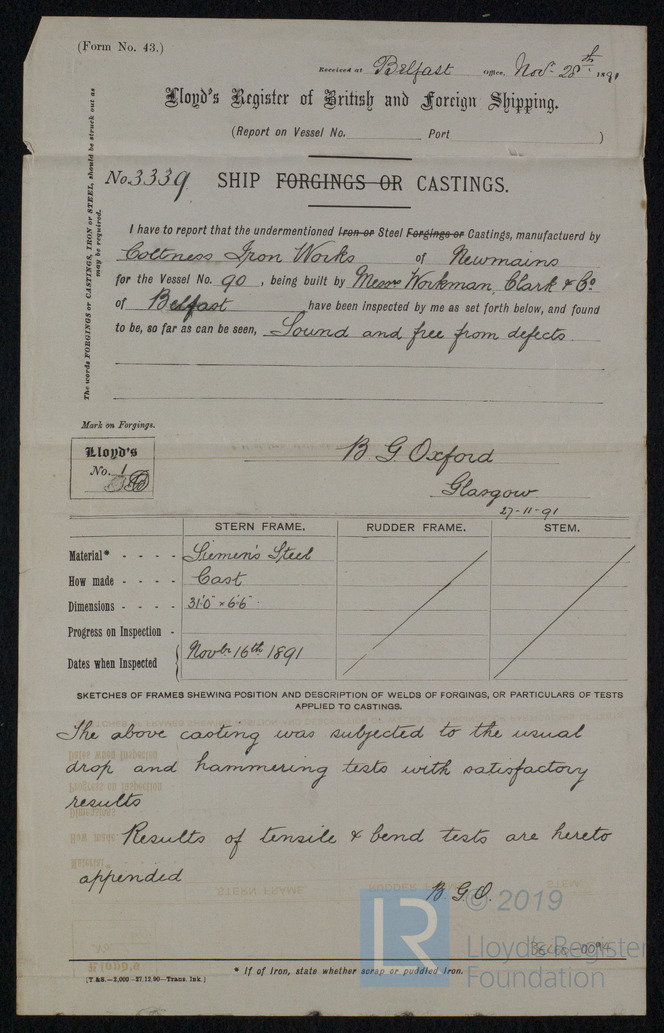 (Form No. 43.)
Received at Belfast Office, Nov. 28th 1891
Lloyd's Register of British and Foreign Shipping.
(Report on Vessel No. Port )
No. 3339 SHIP FORGINGS OR CASTINGS.
The words FORGINGS or CASTINGS, IRON or STEEL, should be struck out as
may be required.
I have to report that the undermentioned Iron or Steel Forgings or Castings, manufactuerd by
Coltness Iron Works of Newmains
for the Vessel No. 90, being built by Messrs Workman, Clark & Co.
of Belfast have been inspected by me as set forth below, and found
to be, so far as can be seen, Sound and free from defects
Mark on Forgings.
Lloyd's
No. 1
B G Oxford
Glasgow
27-11-91
STERN FRAME. RUDDER FRAME. STEM.
Material* - - - - Siemen's Steel
How made - - - - Cast
Dimensions - - - - 31'0" × 6'6"
Progress on Inspection -
Dates when Inspected Novbr 16th 1891
SKETCHES OF FRAMES SHEWING POSITION AND DESCRIPTION OF WELDS OF FORGINGS, OR PARTICULARS OF TESTS
APPLIED TO CASTINGS.
The above casting was subjected to the usual
drop and hammering tests with satisfactory
results
Results of tensile & bend tests are hereto
appended
B. G. O.
© 2019
LR
Lloyd's Register
Foundation
* If of Iron, state whether scrap or puddled Iron.
(T & S.—2,000—27.12.90—Trans. Ink.)